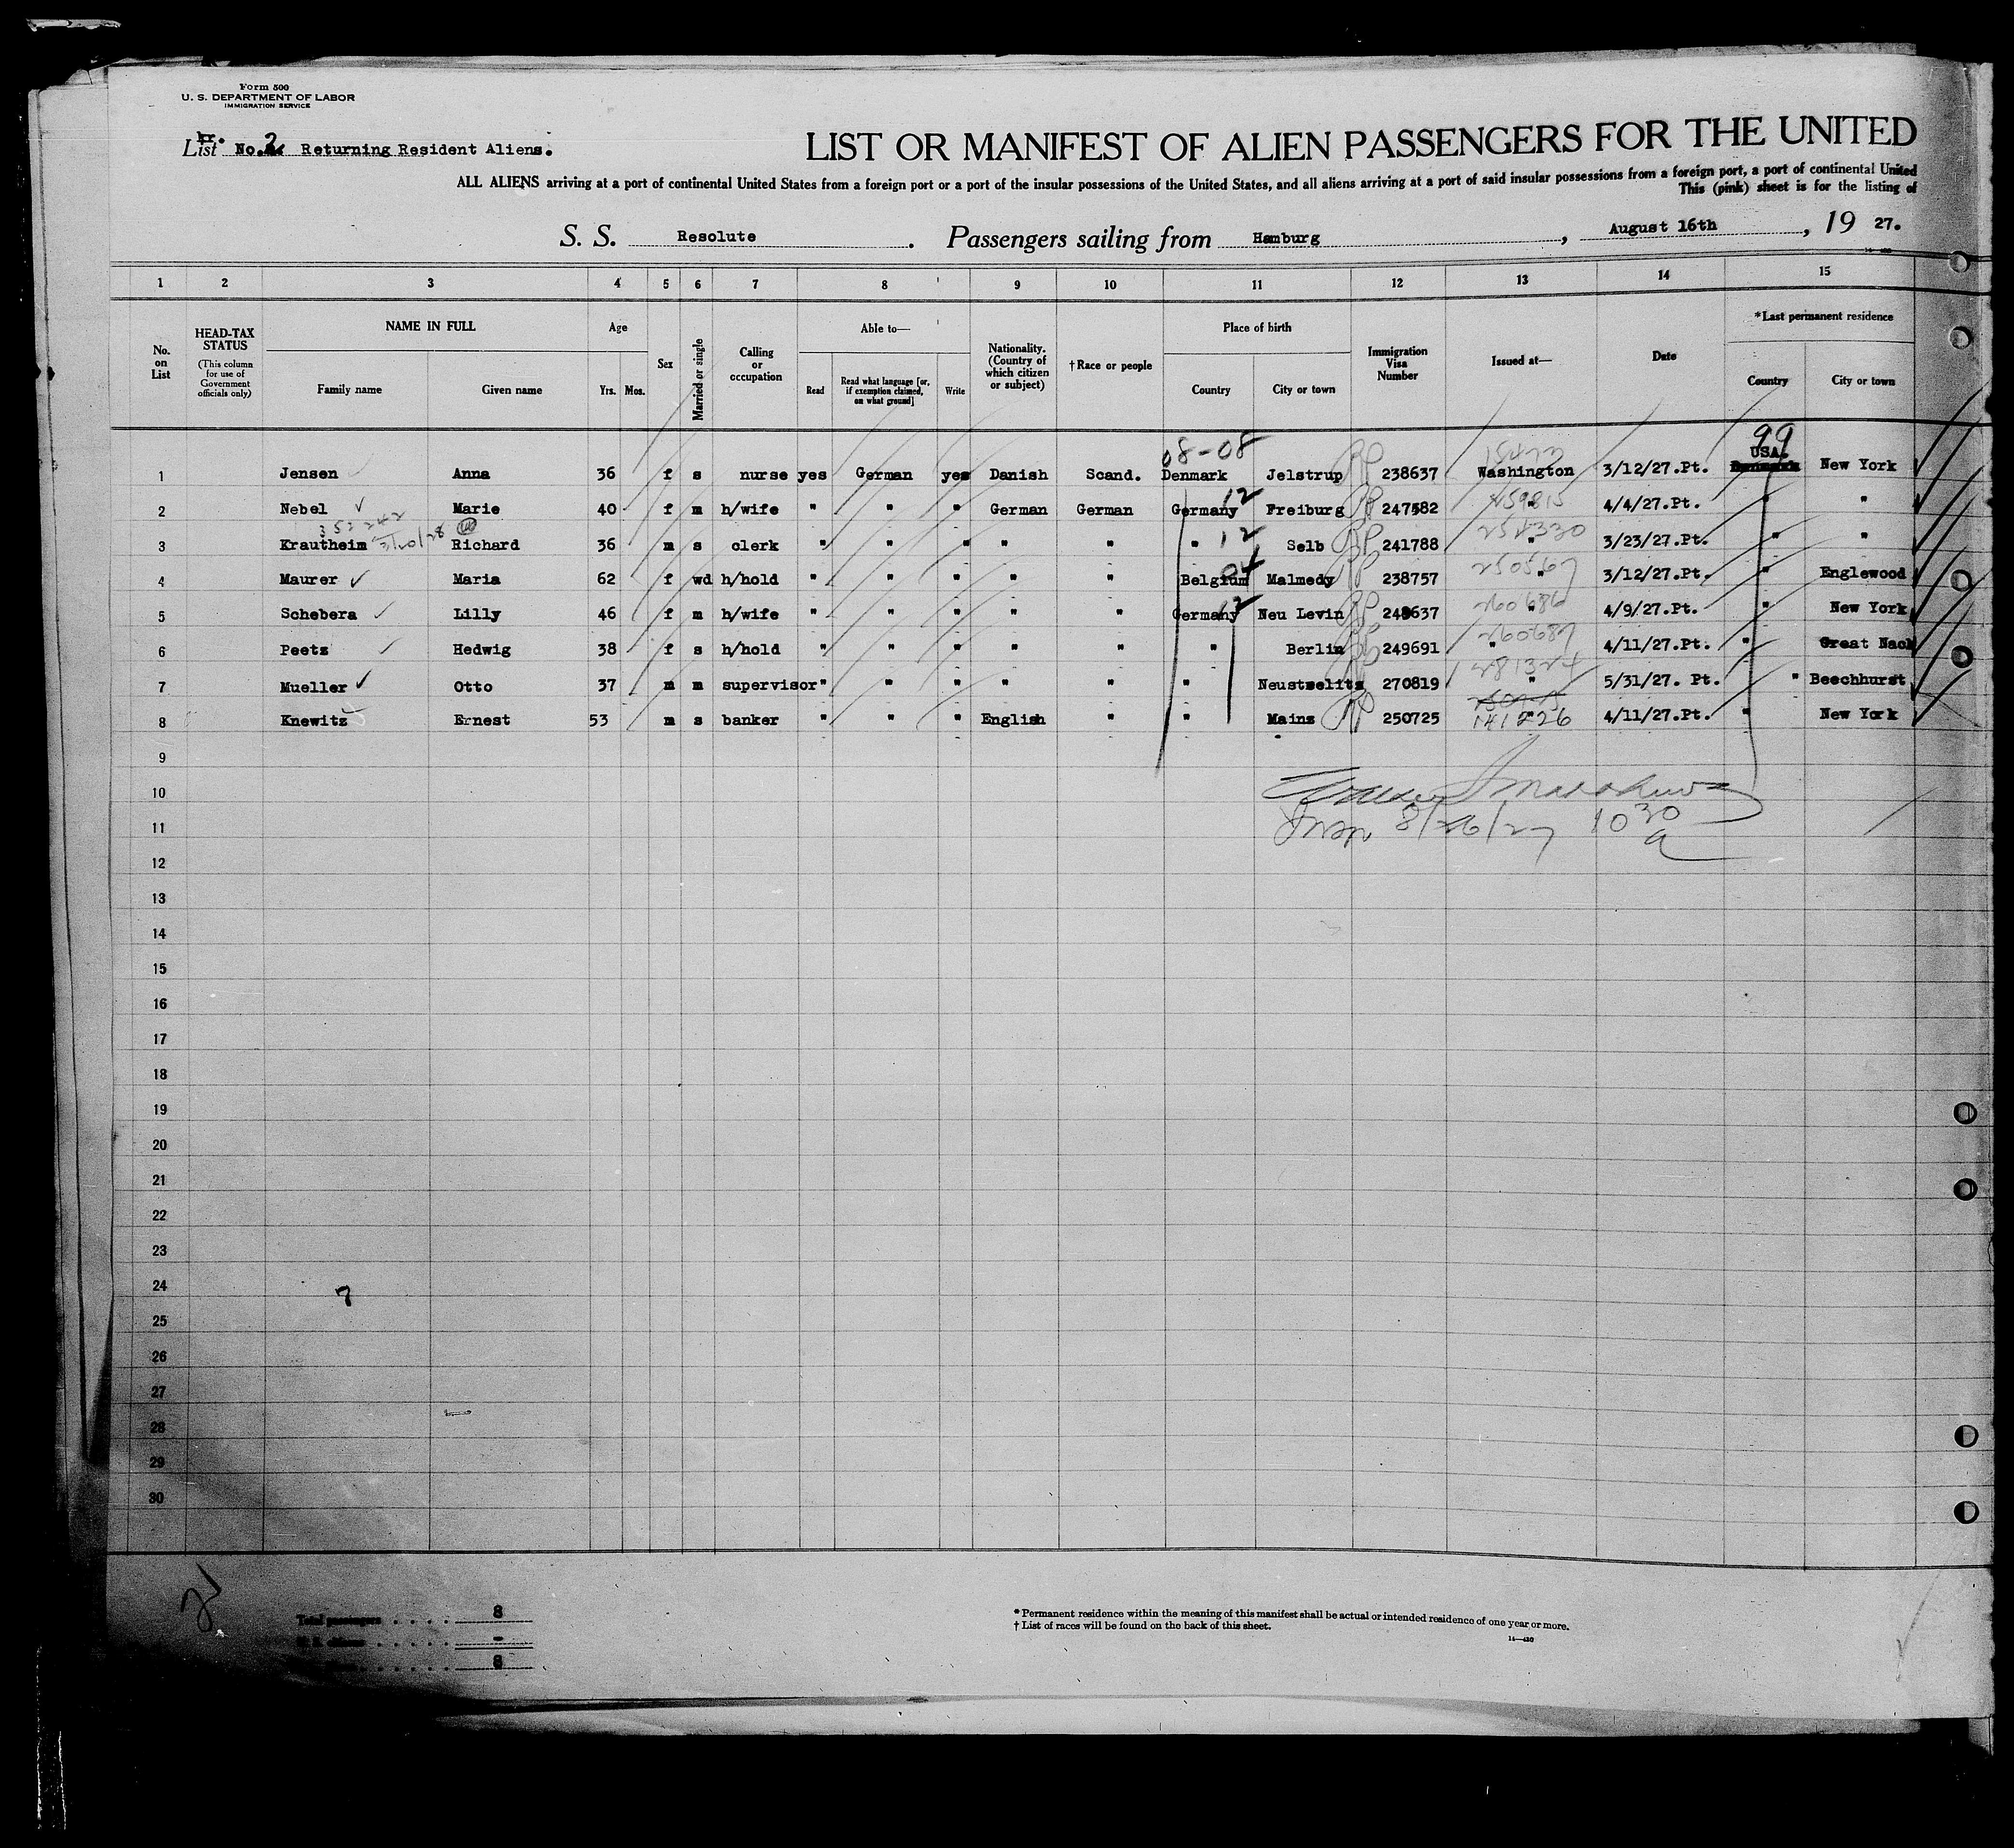 Form 500
U. S. DEPARTMENT OF LABOR
IMMIGRATION SERVICE
List No. 2 Returning Resident Aliens.
LIST OR MANIFEST OF ALIEN PASSENGERS FOR THE UNITED
ALL ALIENS arriving at a port of continental United States from a foreign port or a port of the insular possessions of the United States, and all aliens arriving at a port of said insular possessions from a foreign port, a port of continental United
This (pink) sheet is for the listing of
S. S. Resolute. Passengers sailing from Hamburg, August 16th, 19 27.
1 2 3 4 5 6 7 8 9 10 11 12 13 14 15
No. on List
HEAD-TAX STATUS
(This column for use of Government officials only)
NAME IN FULL
Family name Given name
Age
Yrs. Mos.
Sex
Married or single
Calling or occupation
Able to—
Read
Read what language [or, if exemption claimed, on what ground]
Write
Nationality. (Country of which citizen or subject)
†Race or people
Place of birth
Country City or town
Immigration Visa Number
Issued at—
Date
*Last permanent residence
Country City or town
08-08 99
1 Jensen Anna 36 f s nurse yes German yes Danish Scand. Denmark Jelstrup 238637 Washington 3/12/27.Pt. USA. Denmark New York
2 Nebel Marie 40 f m h/wife " " " German German Germany 12 Freiburg 247582 " 4/4/27.Pt. " "
3 Krautheim 3/20/28 Richard 36 m s clerk " " " " " " 12 Selb 241788 254330 " 3/23/27.Pt. " "
4 Maurer Maria 62 f wd h/hold " " " " " Belgium 04 Malmedy 238757 250567 " 3/12/27.Pt. " Englewood
5 Schebera Lilly 46 f m h/wife " " " " " Germany 12 Neu Levin 248637 260686 " 4/9/27.Pt. " New York
6 Peetz Hedwig 38 f s h/hold " " " " " " Berlin 249691 260687 " 4/11/27.Pt. " Great Neck
7 Mueller Otto 37 m m supervisor " " " " " " Neustrelitz 270819 281324 " 5/31/27. Pt. " Beechhurst
8 Knewitz Ernest 53 m s banker " " " English " " Mainz 250725 141226 " 4/11/27.Pt. " New York
9
10
8/26/27 10 30 a
11
12
13
14
15
16
17
18
19
20
21
22
23
24
7
25
26
27
28
29
30
2
Total passengers 8
U. S. citizens -
8
* Permanent residence within the meaning of this manifest shall be actual or intended residence of one year or more.
† List of races will be found on the back of this sheet.
14—430